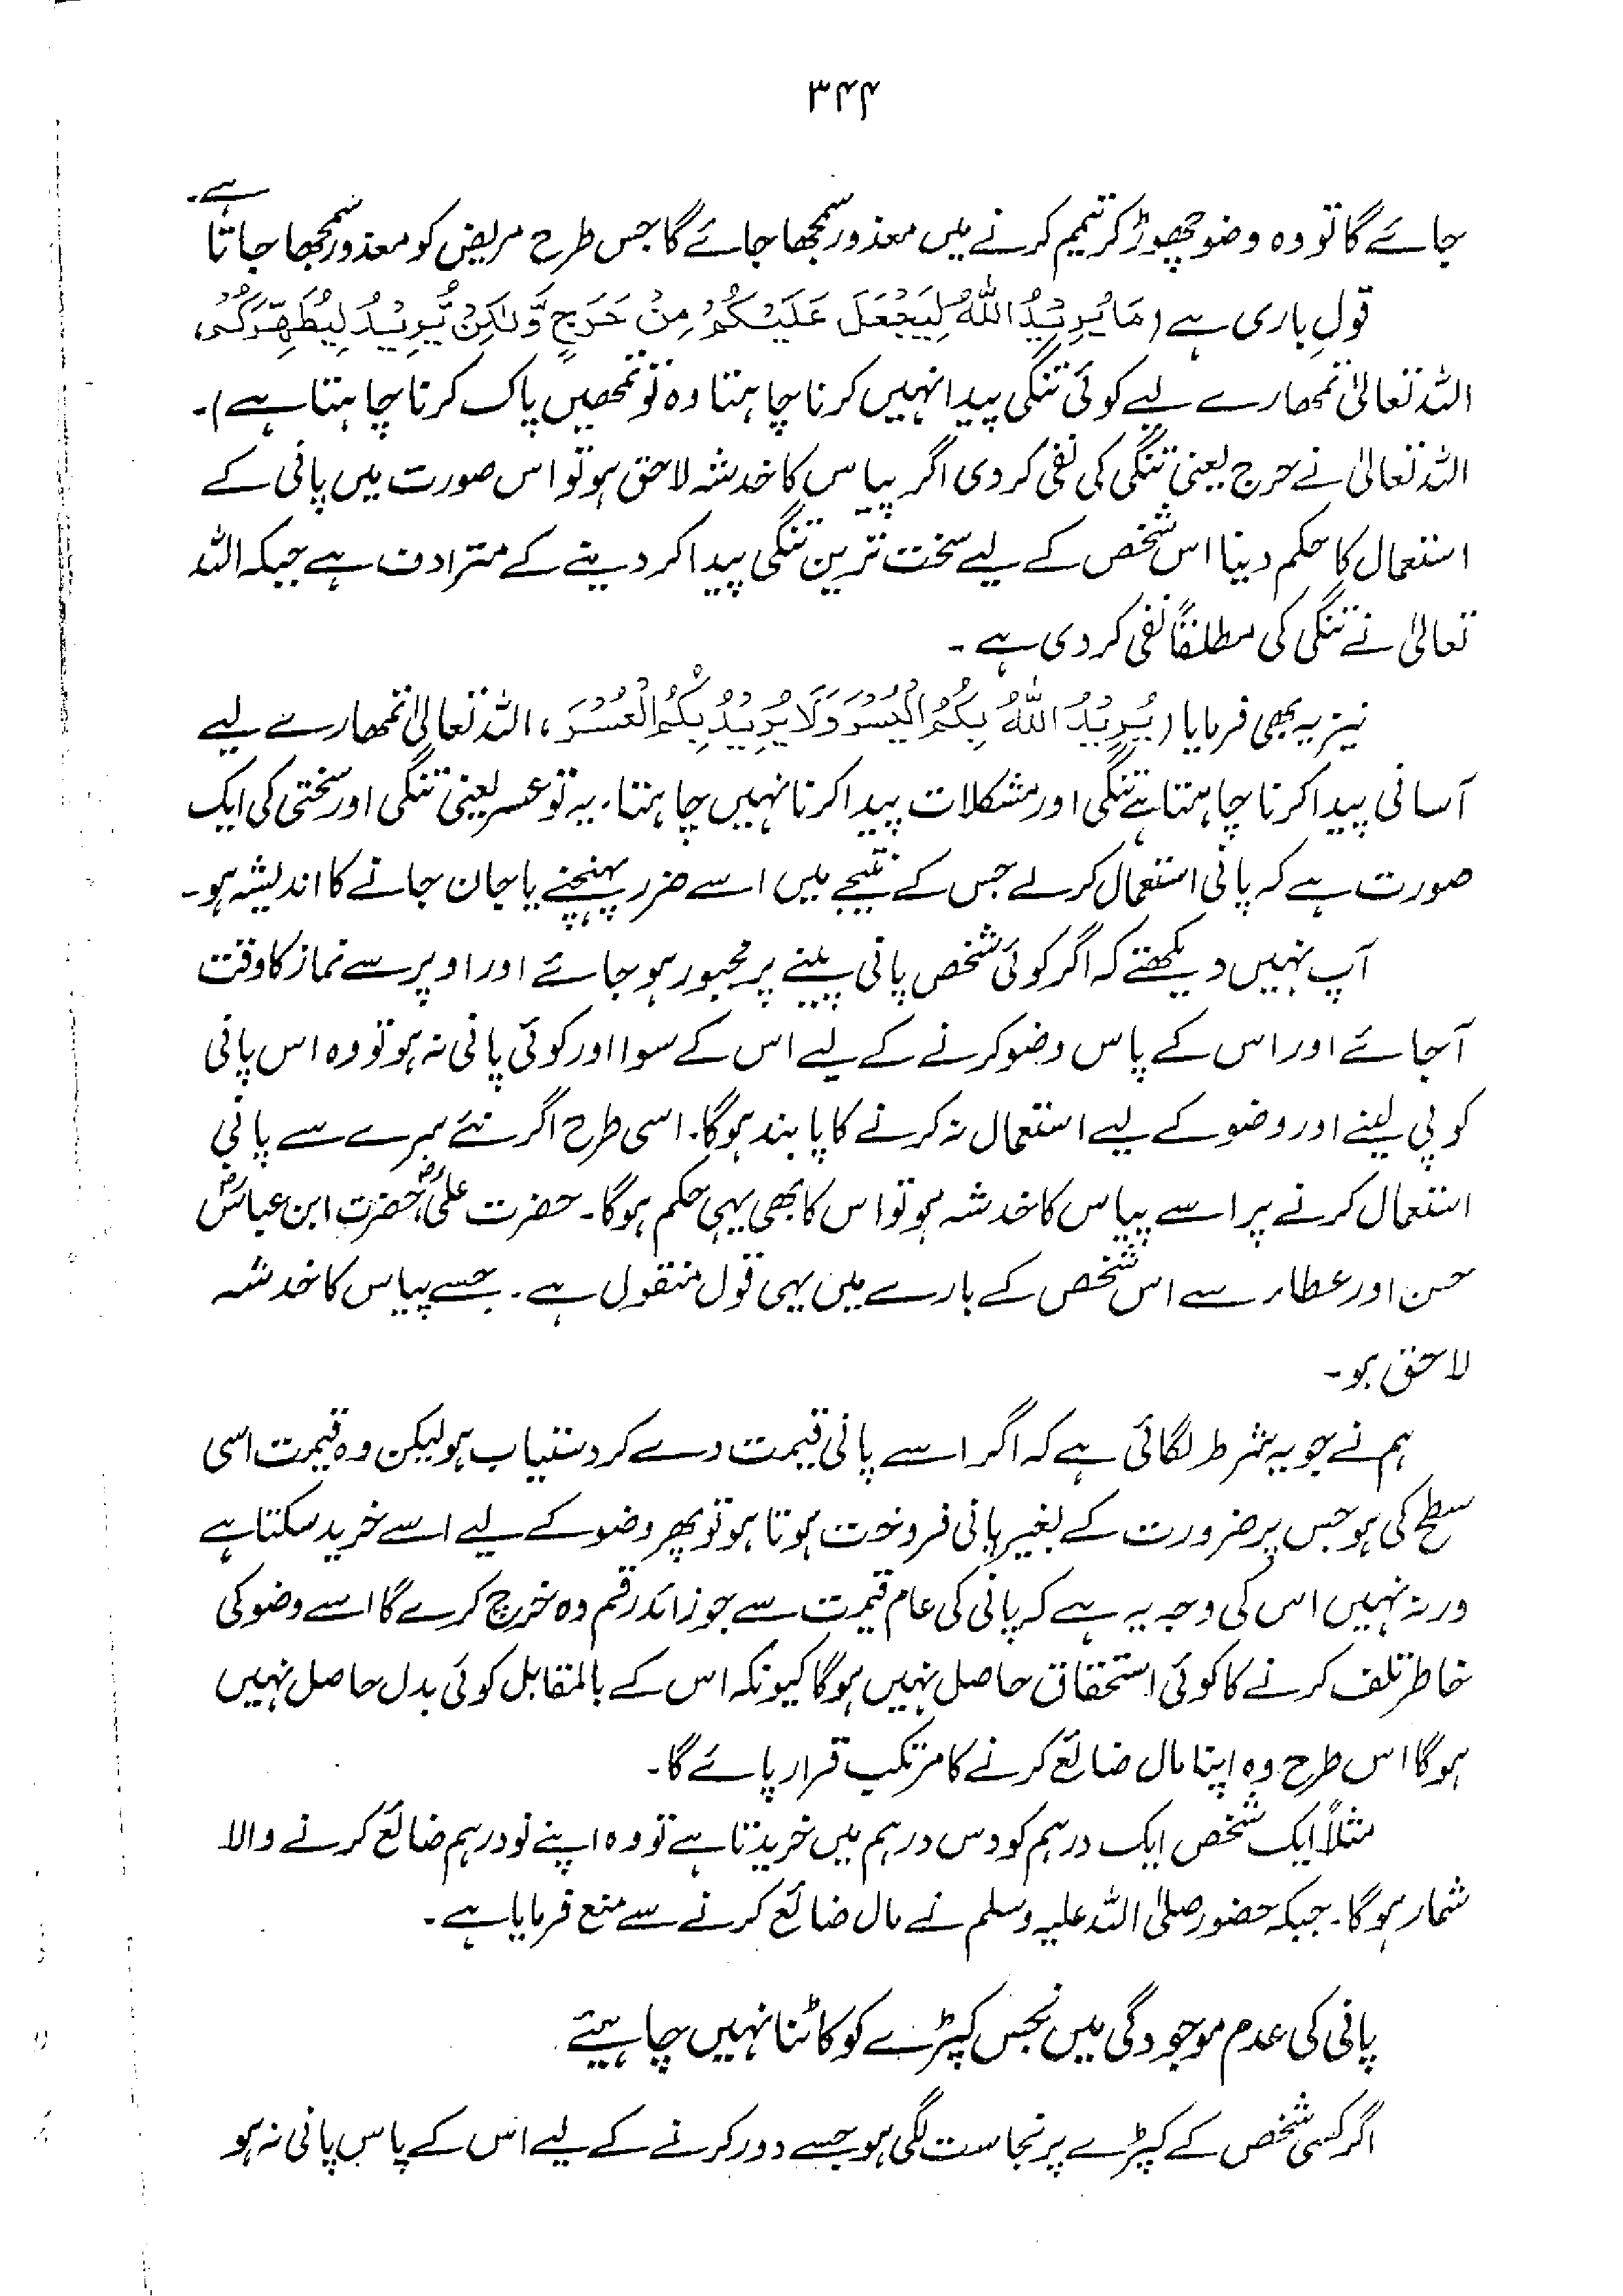 ۳۴۴
جائے گا تو وہ وضو چھوڑ کر تیمم کرنے میں معذور سمجھا جائے گا جس طرح مریض کو معذور سمجھا جاتا ہے۔
قولِ باری ہے (مَا يُرِيْدُ اللّٰهُ لِيَجْعَلَ عَلَيْكُمْ مِنْ حَرَجٍ وَّلٰكِنْ يُّرِيْدُ لِيُطَهِّرَكُمْ،
اللہ تعالیٰ تمھارے لیے کوئی تنگی پیدا نہیں کرنا چاہتا وہ تو تمھیں پاک کرنا چاہتا ہے)۔
اللہ تعالیٰ نے حرج یعنی تنگی کی نفی کر دی اگر پیاس کا خدشہ لاحق ہو تو اس صورت میں پانی کے
استعمال کا حکم دینا اس شخص کے لیے سخت ترین تنگی پیدا کر دینے کے مترادف ہے جبکہ اللہ
تعالیٰ نے تنگی کی مطلقاً نفی کر دی ہے۔
نیز یہ بھی فرمایا (يُرِيْدُ اللّٰهُ بِكُمُ الْيُسْرَ وَلَا يُرِيْدُ بِكُمُ الْعُسْرَ، اللہ تعالیٰ تمھارے لیے
آسانی پیدا کرنا چاہتا ہے تنگی اور مشکلات پیدا کرنا نہیں چاہتا، یہ تو عسر یعنی تنگی اور سختی کی ایک
صورت ہے کہ پانی استعمال کرلے جس کے نتیجے میں اسے ضرر پہنچنے یا جان جانے کا اندیشہ ہو۔
آپ نہیں دیکھتے کہ اگر کوئی شخص پانی پینے پر مجبور ہو جائے اور اوپر سے نماز کا وقت
آجائے اور اس کے پاس وضو کرنے کے لیے اس کے سوا اور کوئی پانی نہ ہو تو وہ اس پانی
کو پی لینے اور وضو کے لیے استعمال نہ کرنے کا پابند ہوگا۔ اسی طرح اگر نئے سرے سے پانی
استعمال کرنے پر اسے پیاس کا خدشہ ہو تو اس کا بھی یہی حکم ہوگا۔ حضرت علیؓ، حضرت ابن عباسؓ
حسن اور عطاء سے اس شخص کے بارے میں یہی قول منقول ہے۔ جسے پیاس کا خدشہ
لاحق ہو۔
ہم نے جو یہ شرط لگائی ہے کہ اگر اسے پانی قیمت دے کر دستیاب ہو لیکن وہ قیمت اسی
سطح کی ہو جس پر ضرورت کے بغیر پانی فروخت ہوتا ہو تو پھر وضو کے لیے اسے خرید سکتا ہے
ورنہ نہیں اس کی وجہ یہ ہے کہ پانی کی عام قیمت سے جو زائد رقم وہ خرچ کرے گا اسے وضو کی
خاطر تلف کرنے کا کوئی استحقاق حاصل نہیں ہوگا کیونکہ اس کے بالمقابل کوئی بدل حاصل نہیں
ہوگا اس طرح وہ اپنا مال ضائع کرنے کا مرتکب قرار پائے گا۔
مثلاً ایک شخص ایک درہم کو دس درہم میں خریدتا ہے تو وہ اپنے نو درہم ضائع کرنے والا
شمار ہوگا۔ جبکہ حضور صلی اللہ علیہ وسلم نے مال ضائع کرنے سے منع فرمایا ہے۔
پانی کی عدم موجودگی میں نجس کپڑے کو کاٹنا نہیں چاہیئے
اگر کسی شخص کے کپڑے پر نجاست لگی ہو جسے دور کرنے کے لیے اس کے پاس پانی نہ ہو